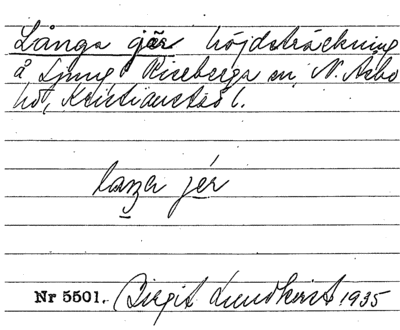 Långa gär höjdsträckning
å Ljung Riseberga sn, N. Åsbo
hd, Kristianstad l.
laŋa jér
Nr 5501. Birgit Lundkvist 1935